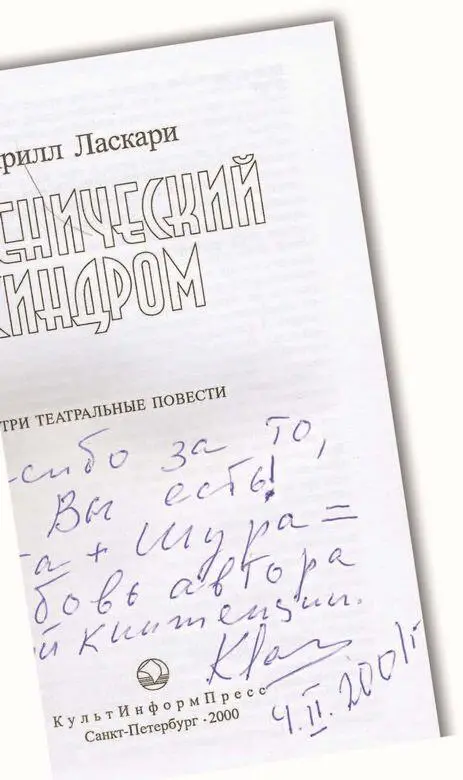 рилл Ласкари
енический
индром
ТРИ ТЕАТРАЛЬНЫЕ ПОВЕСТИ
сибо за то,
Вы есть!
а + Шура =
бовь автора
й книженции.
КультИнформПресс
Санкт-Петербург · 2000
4.II.2001г